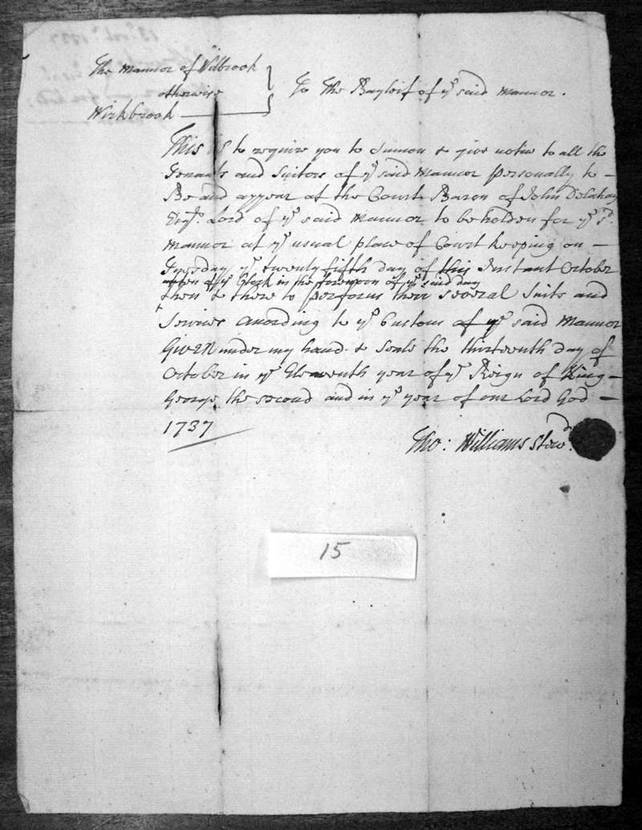 The Mannor of Wilbrook
otherwise
Wirkbrook
To The Bayleif of yᵉ said Mannor.
This is to require you to Sumon & give notice to all the
Tenants and Suitors of yᵉ said Mannor personally to
Be and appear at the Court Baron of John
Esqʳ. Lord of yᵉ said Mannor to be holden for yᵉ sᵈ.
Mannor at yᵉ usual place of Court keeping on
Tuesday yᵉ twenty fifth day of this Instant October
of yᵉ Clock in the forenoon of yᵉ said day
then & there to perform their several Suits and
Services according to yᵉ Customs of yᵉ said Mannor
Given under my hand & Seale the thirteenth day of
October in yᵉ Eleventh year of yᵉ Reign of King
George the second and in yᵉ year of our Lord God
1737
Tho: Williams Stewᵈ.
15